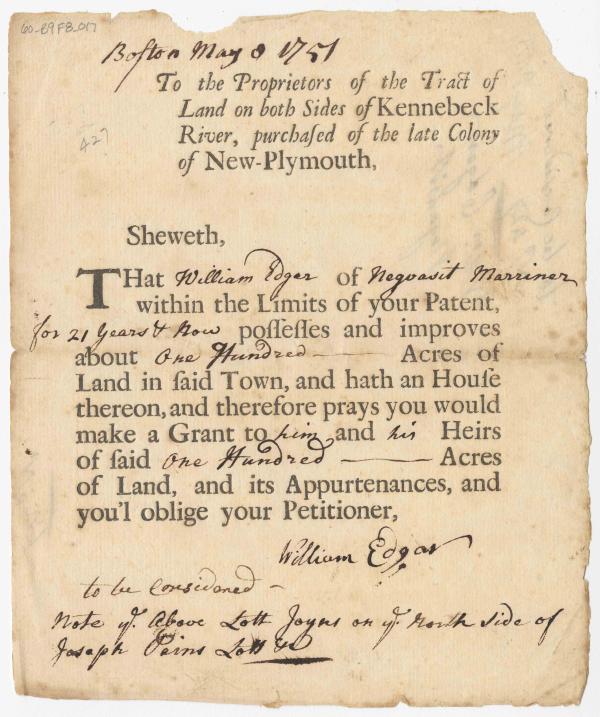 60-89FB-017
Boston May 8 1751
To the Proprietors of the Tract of
Land on both Sides of Kennebeck
River, purchaſed of the late Colony
of New-Plymouth,
427
Sheweth,
THat William Edger of Negvasit Marriner
within the Limits of your Patent,
for 21 Years & Now poſſeſſes and improves
about One Hundred — Acres of
Land in ſaid Town, and hath an Houſe
thereon, and therefore prays you would
make a Grant to him and his Heirs
of ſaid One Hundred — Acres
of Land, and its Appurtenances, and
you'l oblige your Petitioner,
William Edgar
to be Considered —
Note yͤ. Above Lott Joyns on yͤ. North Side of
Joseph Pains Lott &